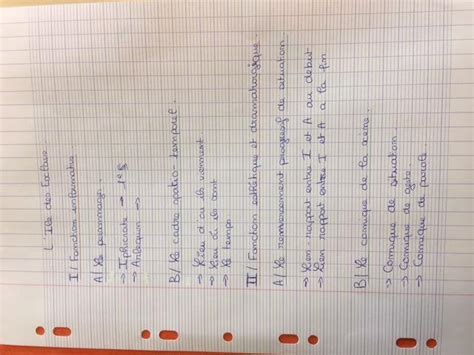 L'Ile des Esclaves.
I / Fonction informative.
A/ Le personnage.
→ Iphicrate →
→ Arlequin →
B/ Le cadre spatio-temporel.
→ Lieu d'où ils viennent
→ Lieu où ils sont
→ Le temps
II / Fonction esthétique et dramaturgique.
A/ Le renversement progressif de situation.
→ Lien-rapport entre I et A au début
→ Lien-rapport entre I et A à la fin
B/ Le comique de la scène.
→ Comique de situation
→ Comique de geste
→ Comique de parole